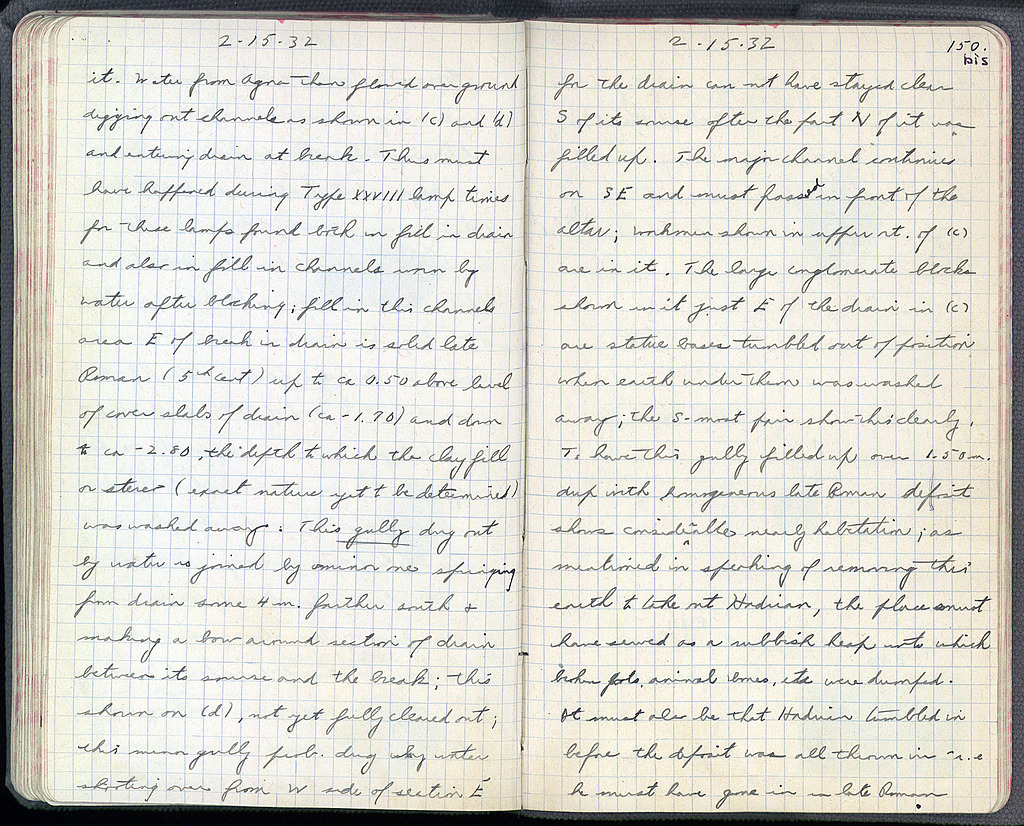 2-15-32
it. Water from Agora then flowed over ground
digging out channels as shown in (c) and (d)
and entering drain at break. This must
have happened during Type XXVIII lamp times
for these lamps found both in fill in drain
and also in fill in channels worn by
water after blocking; fill in this channels
area E of break in drain is solid late
Roman (5th cent) up to ca 0.50 above level
of cover slabs of drain (ca -1.70) and down
to ca -2.80, the depth to which the clay fill
or stereo (exact nature yet to be determined)
was washed away. This gully dug out
by water is joined by a minor one springing
from drain some 4 m. farther south &
making a bow around section of drain
between its source and the break; this
shown on (d), not yet fully cleared out;
this minor gully prob. dug by water
shooting over from W side of section E
2-15-32
150.
bis
for the drain can not have stayed clear
S of its source after the part N of it was
filled up. The major channel continues
on SE and must pass in front of the
altar; workmen shown in upper rt. of (c)
are in it. The large conglomerate blocks
shown in it just E of the drain in (c)
are statue bases tumbled out of position
when earth under them was washed
away; the S-most pair show this clearly.
To have this gully filled up over 1.50 m.
deep with homogenous late Roman deposit
shows considerable nearby habitation; as
mentioned in speaking of removing this
earth to take out Hadrian, the place must
have served as a rubbish heap into which
broken pots, animal bones, etc were dumped.
It must also be that Hadrian tumbled in
before the deposit was all thrown in - i.e
he must have gone in in late Roman